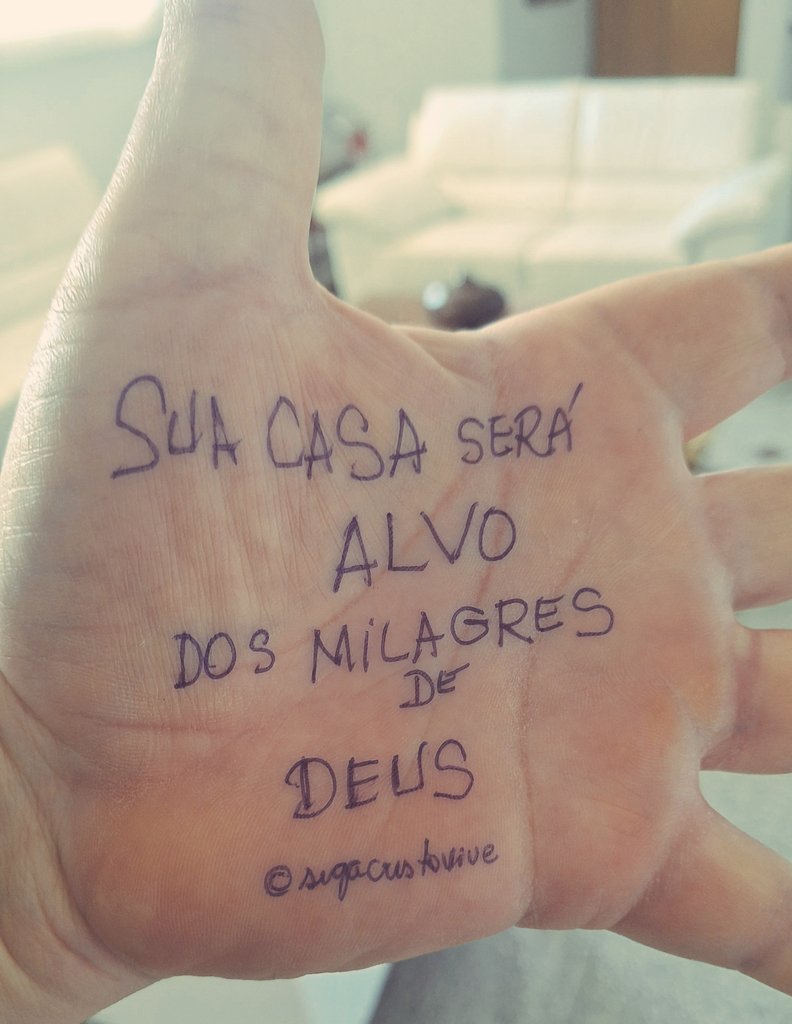 SUA CASA SERÁ
ALVO
DOS MILAGRES
DE
DEUS
©sigacristovive